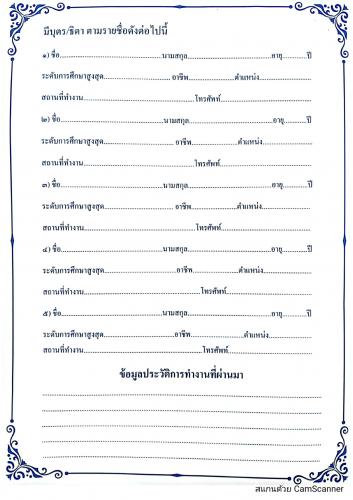 มีบุตร/ธิดา ตามรายชื่อดังต่อไปนี้
๑) ชื่อ.............................................นามสกุล......................................อายุ...........ปี
ระดับการศึกษาสูงสุด................................อาชีพ........................ตำแหน่ง...........................
สถานที่ทำงาน................................................โทรศัพท์...................................
๒) ชื่อ.............................................นามสกุล......................................อายุ...........ปี
ระดับการศึกษาสูงสุด................................อาชีพ........................ตำแหน่ง...........................
สถานที่ทำงาน................................................โทรศัพท์...................................
๓) ชื่อ.............................................นามสกุล......................................อายุ...........ปี
ระดับการศึกษาสูงสุด................................อาชีพ........................ตำแหน่ง...........................
สถานที่ทำงาน................................................โทรศัพท์...................................
๔) ชื่อ.............................................นามสกุล......................................อายุ...........ปี
ระดับการศึกษาสูงสุด................................อาชีพ........................ตำแหน่ง...........................
สถานที่ทำงาน................................................โทรศัพท์...................................
๕) ชื่อ.............................................นามสกุล......................................อายุ...........ปี
ระดับการศึกษาสูงสุด................................อาชีพ........................ตำแหน่ง...........................
สถานที่ทำงาน................................................โทรศัพท์...................................
ข้อมูลประวัติการทำงานที่ผ่านมา
สแกนด้วย CamScanner